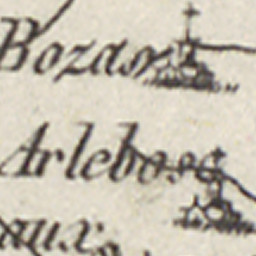 Bozas
Arlebosc
aux